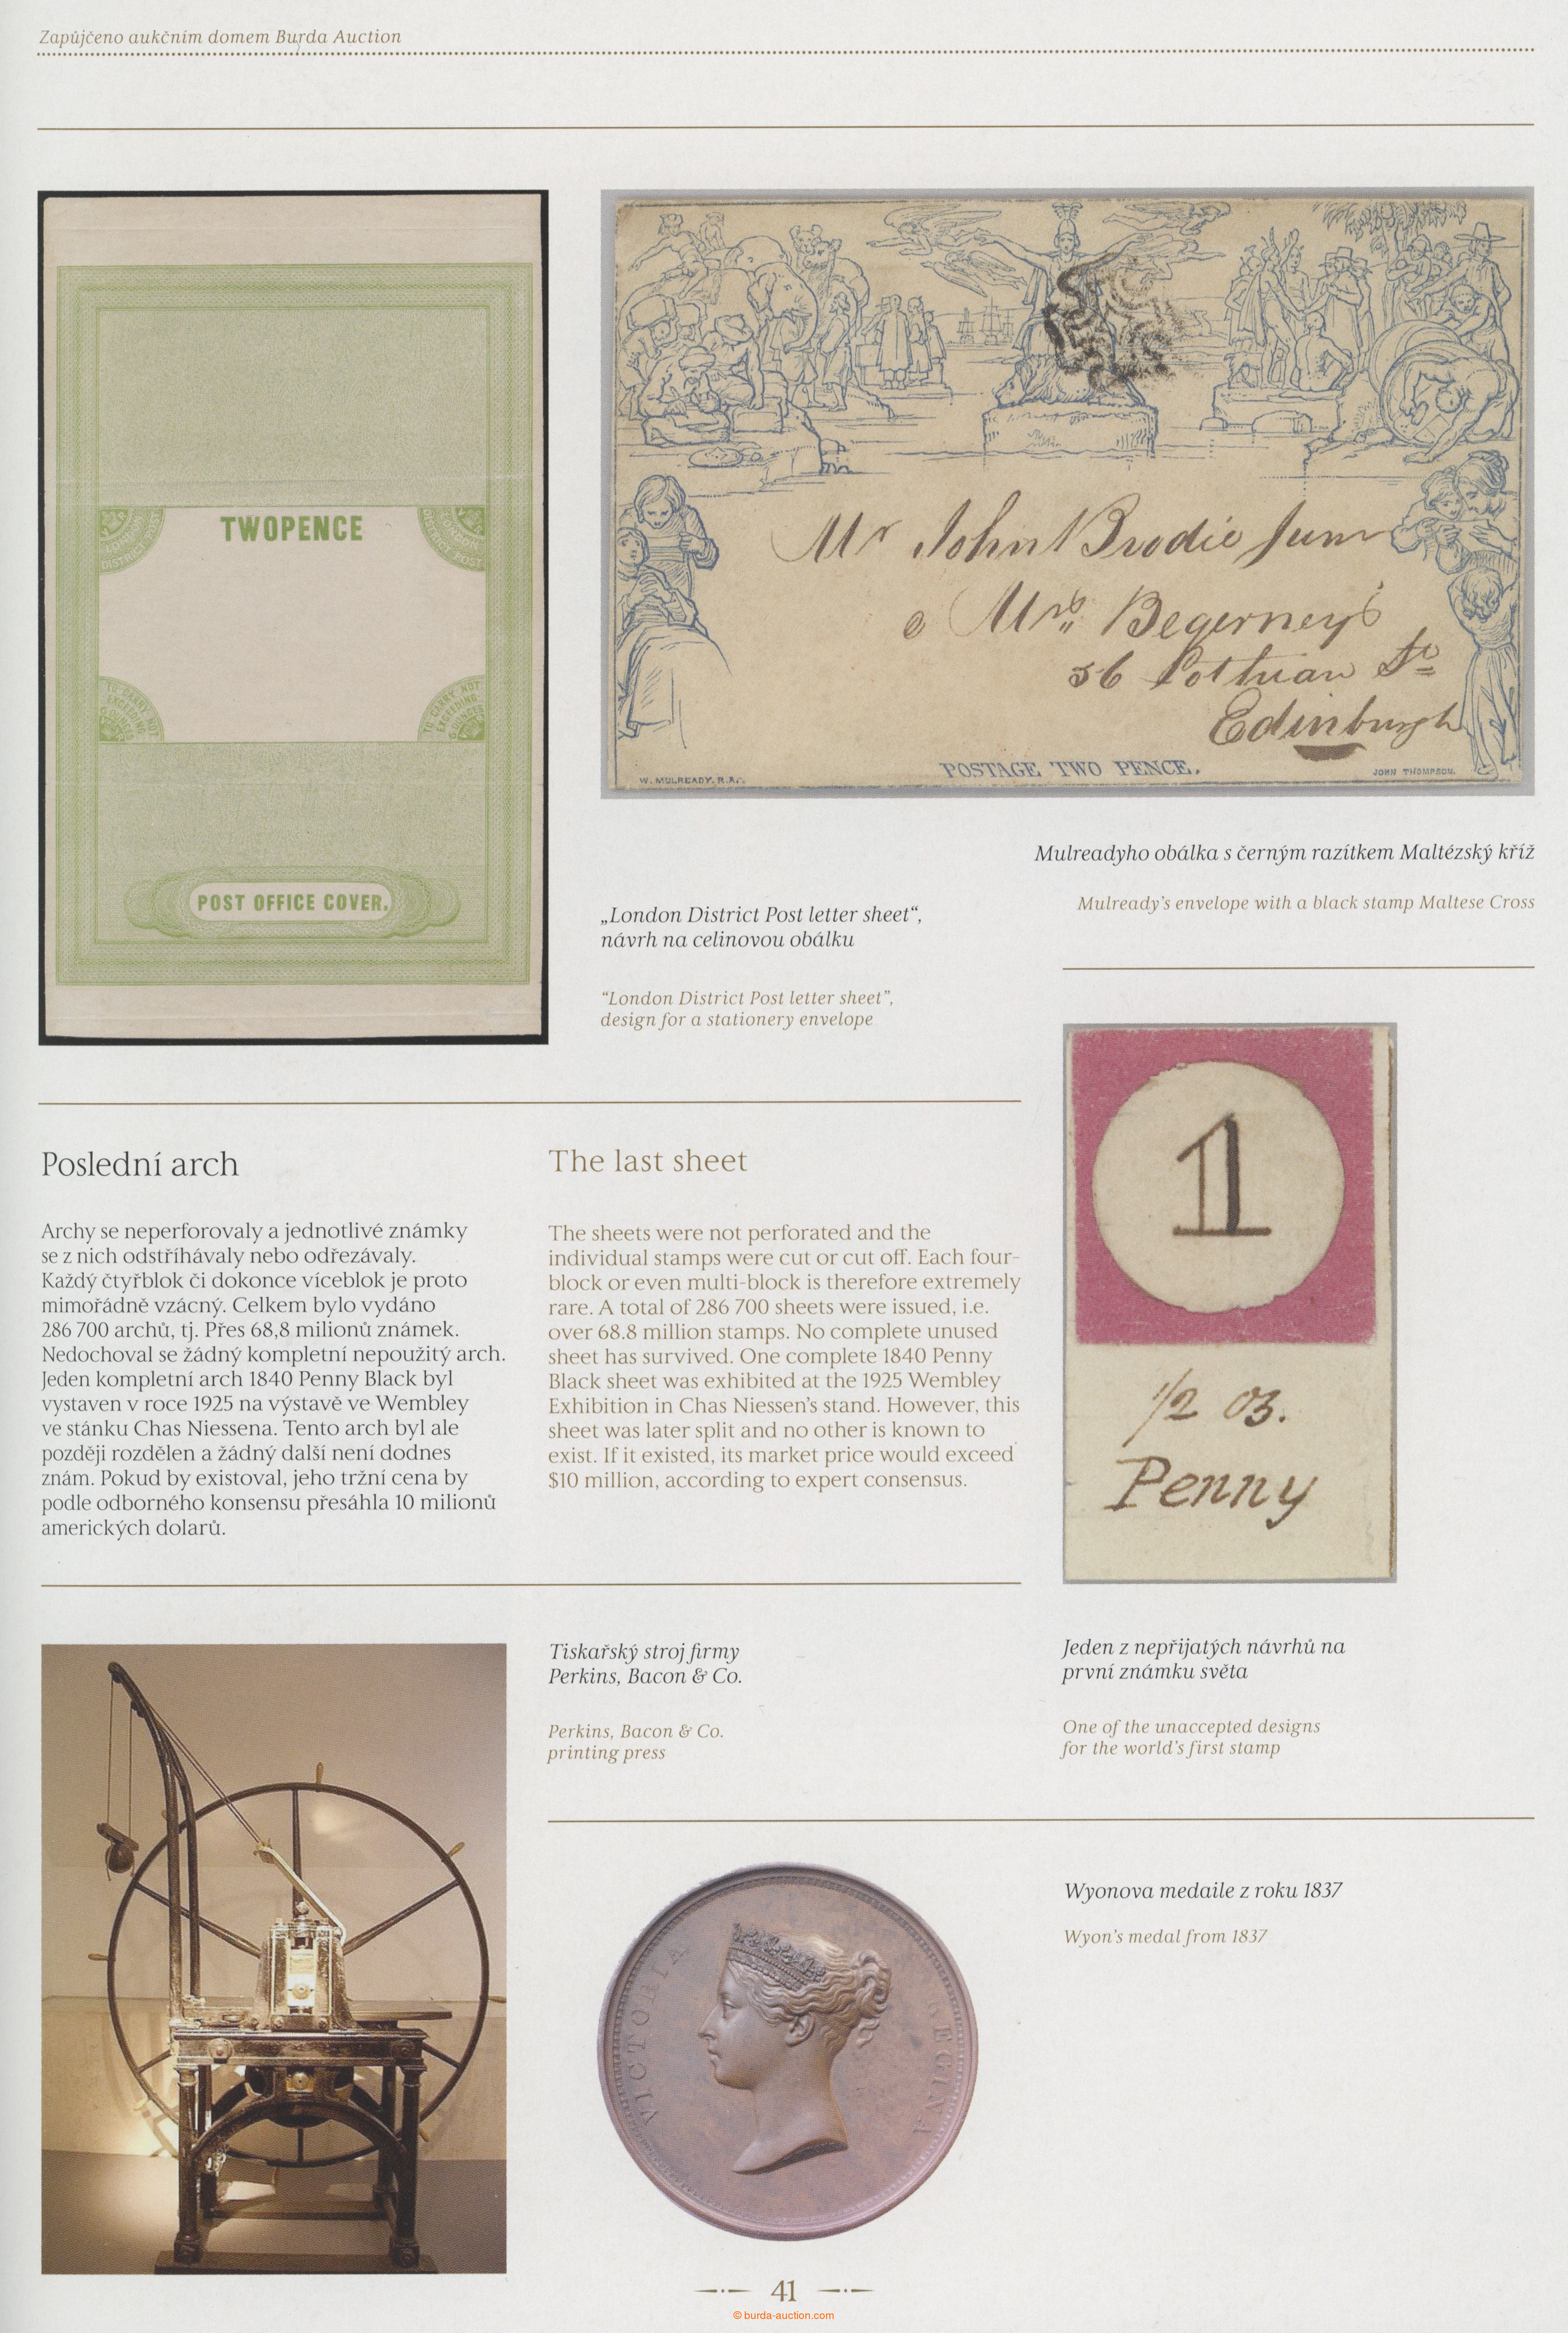 Zapůjčeno aukčním domem Burda Auction
TWOPENCE
LONDON DISTRICT POST
LONDON DISTRICT POST
TO CARRY NOT EXCEEDING
TO CARRY NOT EXCEEDING
POST OFFICE COVER.
Mr John Brodie Junr
Mrs Begerney's
36 Lothian St
Edinburgh
POSTAGE TWO PENCE.
W. MULREADY. R.A.
JOHN THOMPSON.
Mulreadyho obálka s černým razítkem Maltézský kříž
Mulready's envelope with a black stamp Maltese Cross
„London District Post letter sheet“,
návrh na celinovou obálku
“London District Post letter sheet”,
design for a stationery envelope
Poslední arch
Archy se neperforovaly a jednotlivé známky
se z nich odstříhávaly nebo odřezávaly.
Každý čtyřblok či dokonce víceblok je proto
mimořádně vzácný. Celkem bylo vydáno
286 700 archů, tj. Přes 68,8 milionů známek.
Nedochoval se žádný kompletní nepoužitý arch.
Jeden kompletní arch 1840 Penny Black byl
vystaven v roce 1925 na výstavě ve Wembley
ve stánku Chas Niessena. Tento arch byl ale
později rozdělen a žádný další není dodnes
znám. Pokud by existoval, jeho tržní cena by
podle odborného konsensu přesáhla 10 milionů
amerických dolarů.
The last sheet
The sheets were not perforated and the
individual stamps were cut or cut off. Each four-
block or even multi-block is therefore extremely
rare. A total of 286 700 sheets were issued, i.e.
over 68.8 million stamps. No complete unused
sheet has survived. One complete 1840 Penny
Black sheet was exhibited at the 1925 Wembley
Exhibition in Chas Niessen's stand. However, this
sheet was later split and no other is known to
exist. If it existed, its market price would exceed
$10 million, according to expert consensus.
1
1/2 oz.
Penny
Tiskařský stroj firmy
Perkins, Bacon & Co.
Perkins, Bacon & Co.
printing press
Jeden z nepřijatých návrhů na
první známku světa
One of the unaccepted designs
for the world's first stamp
VICTORIA REGINA
Wyonova medaile z roku 1837
Wyon's medal from 1837
41
© burda-auction.com